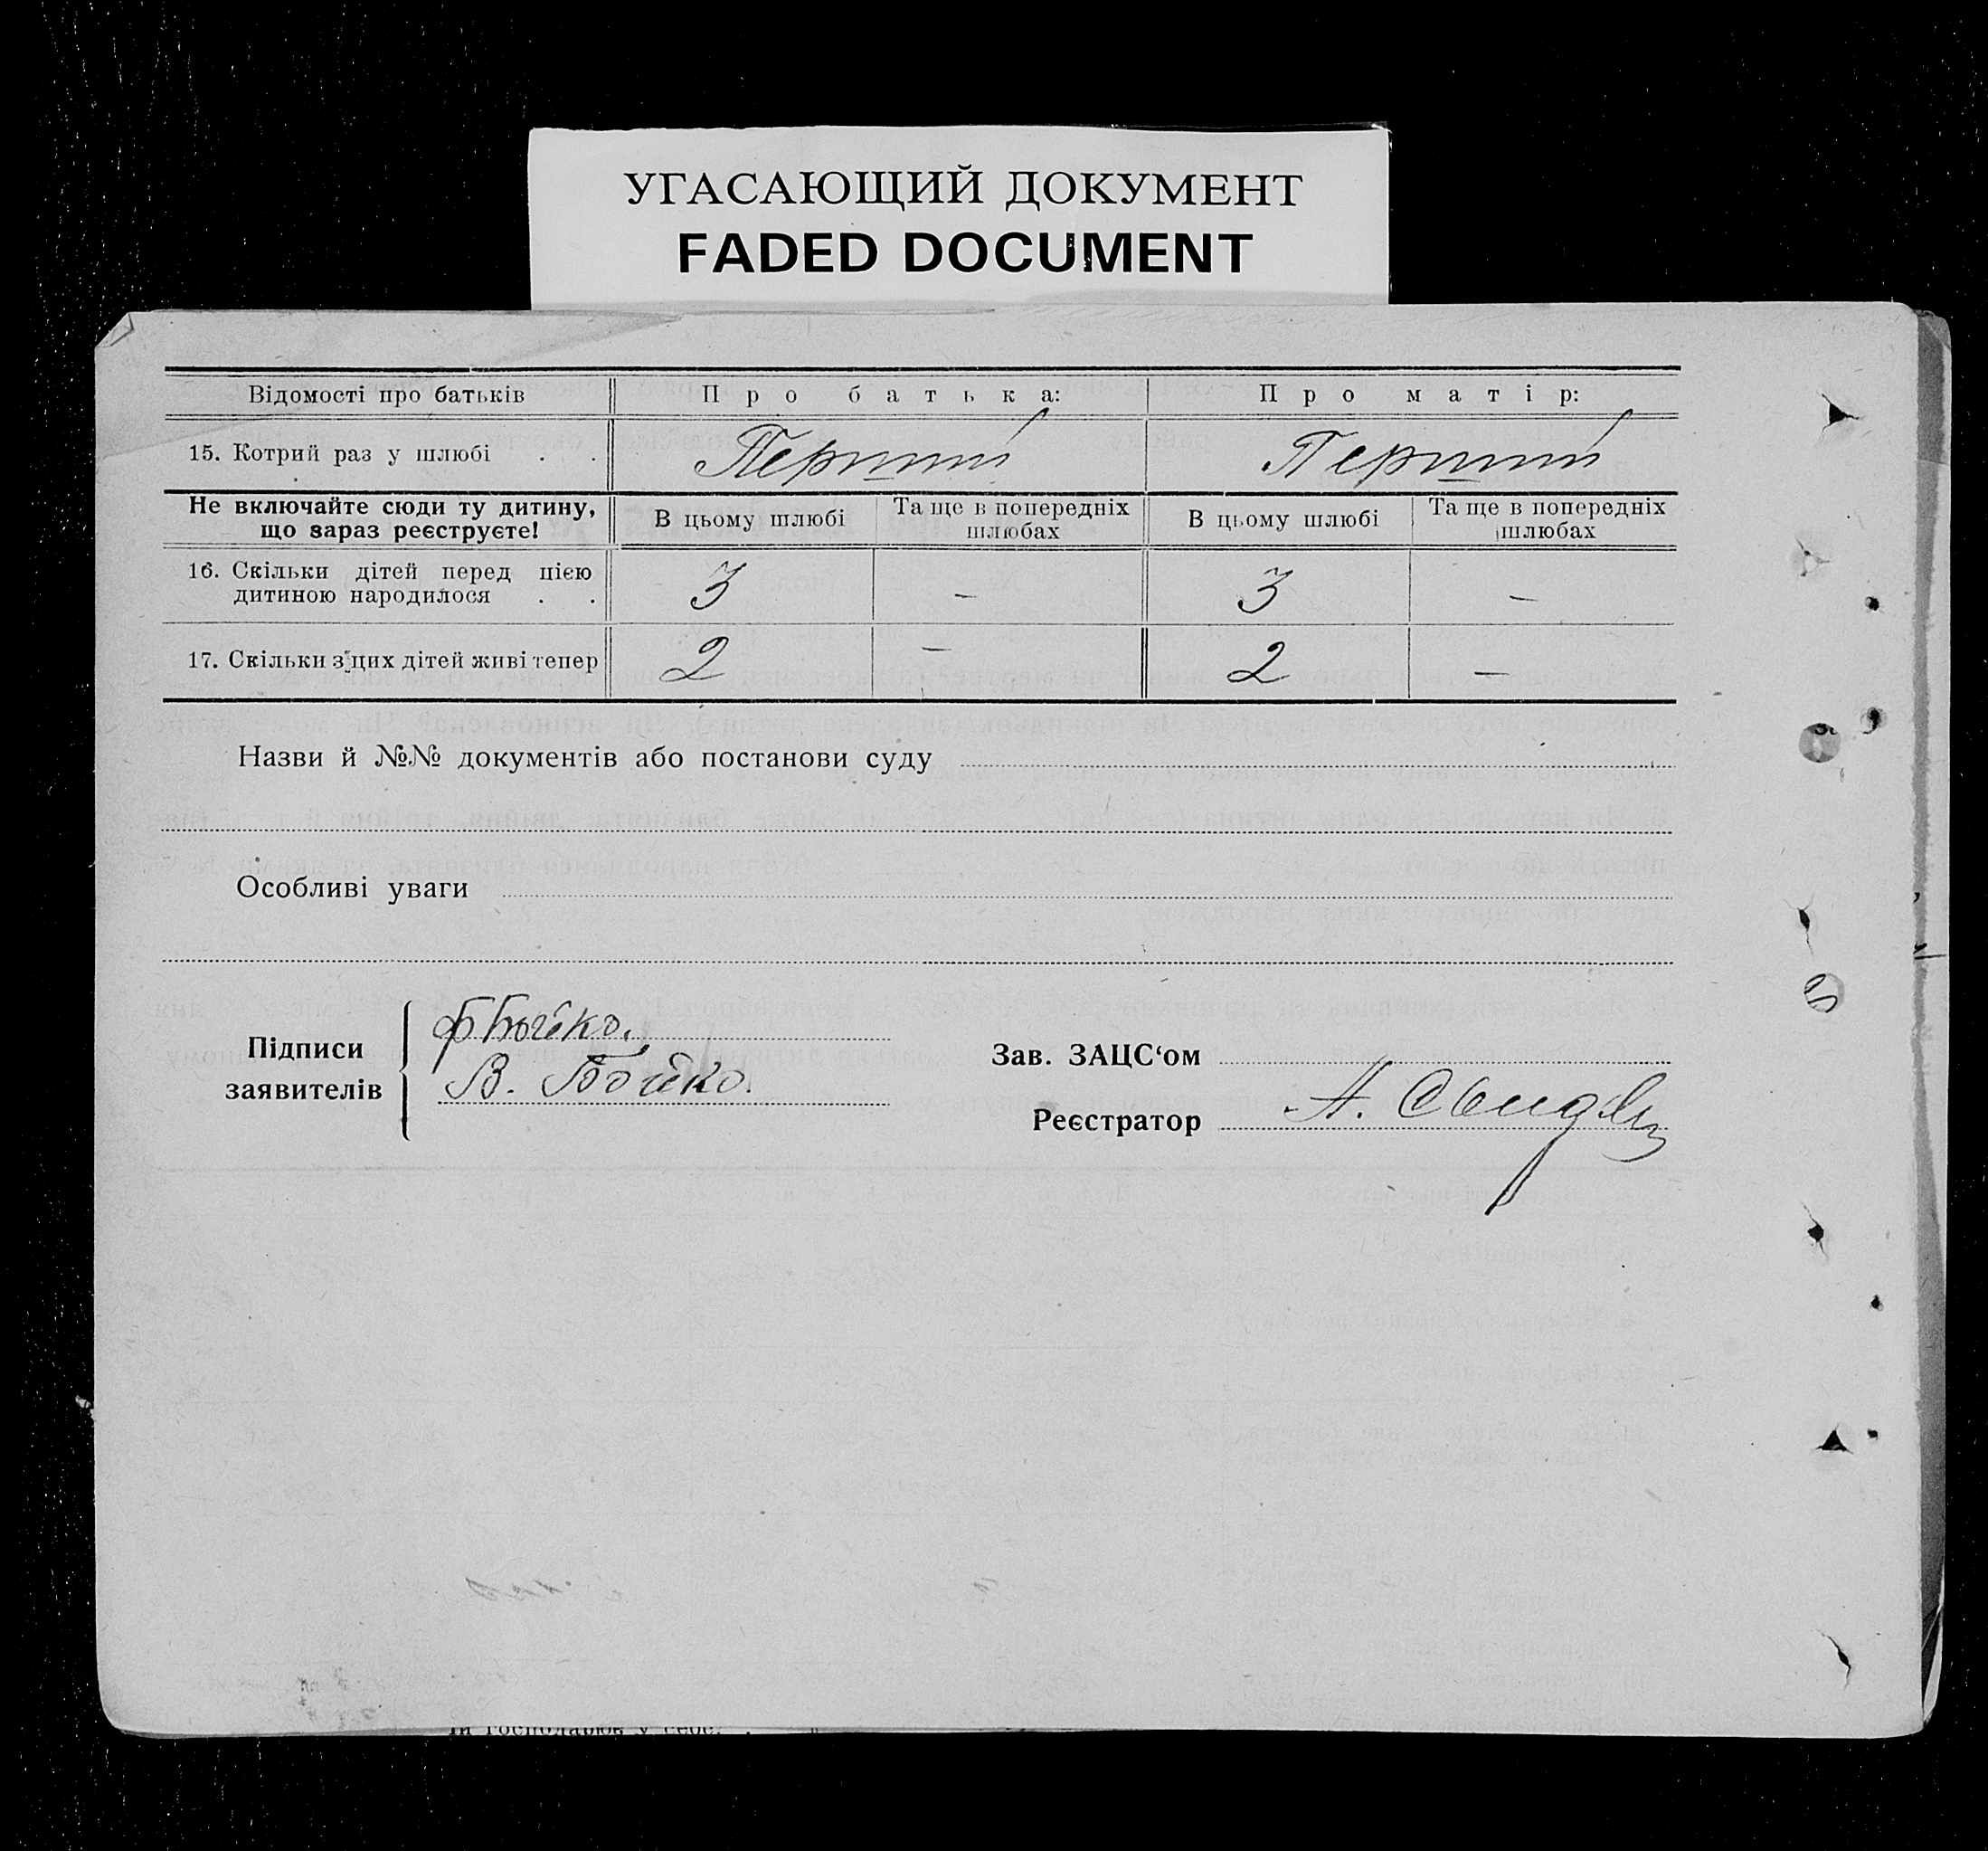 УГАСАЮЩИЙ ДОКУМЕНТ
FADED DOCUMENT
Відомості про батьків Про батька: Про матір:
15. Котрий раз у шлюбі . . Перший Перший
Не включайте сюди ту дитину, що зараз реєструєте! В цьому шлюбі Та ще в попередніх шлюбах В цьому шлюбі Та ще в попередніх шлюбах
16. Скільки дітей перед цією дитиною народилося . . 3 — 3 —
17. Скільки з цих дітей живі тепер 2 — 2 —
Назви й №№ документів або постанови суду
Особливі уваги
Підписи заявителів
Ф Бойко.
В. Бойко.
Зав. ЗАЦС‘ом
Реєстратор А.